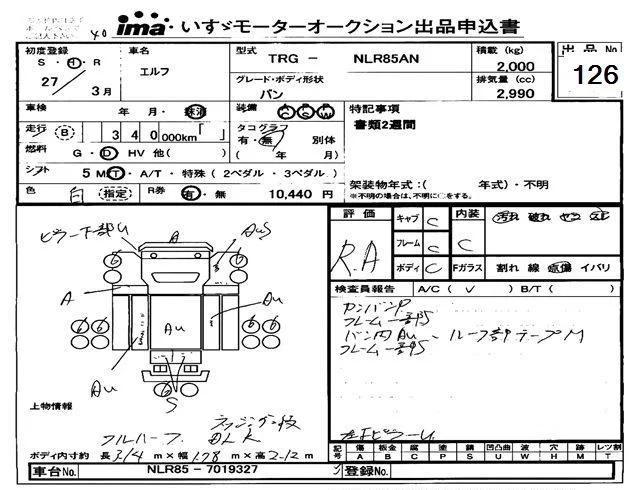 ima いすゞモーターオークション出品申込書
初度登録 S・H・R 27年 3月
車名 エルフ
型式 TRG - NLR85AN
グレード・ボディ形状 バン
積載 (kg) 2,000
排気量 (cc) 2,990
出品No. 126
車検 年 月・抹消
装備 AC PS PW
走行 (B) 340000km「 」
タコグラフ 有・無 別体 ( 年 月)
燃料 G・D HV 他( )
シフト 5 MT・A/T・特殊 (2ペダル・3ペダル)
色 白 (指定) R券 有・無 10,440 円
特記事項
書類2週間
架装物年式:( 年式)・不明
※不明の場合は、不明に○をする。
評価 R.A
キャブ C
フレーム C
ボディ C
内装 C
汚れ 破れ
Fガラス 割れ 線 点傷 イバリ
検査員報告 A/C ( ✓ ) B/T ( )
カンバンP
フレーム一部S
バン内Au、ルーフ部テープM
フレーム一部S
左右ピラーU
ピラー下部U
A
AuS
A
Au
Au
Au
S
6 6 6 6 6 6
上物情報
フルハーフ
ラッシング2段
ボディ内寸約 長 3.14 m×幅 1.78 m×高 2.12 m
記号 傷 A 板金 B 腐 C 塗 P 錆 S 凹凸曲 U 波 W 穴 H 跡 M レツ割 T
車台No. NLR85 - 7019327
登録No.